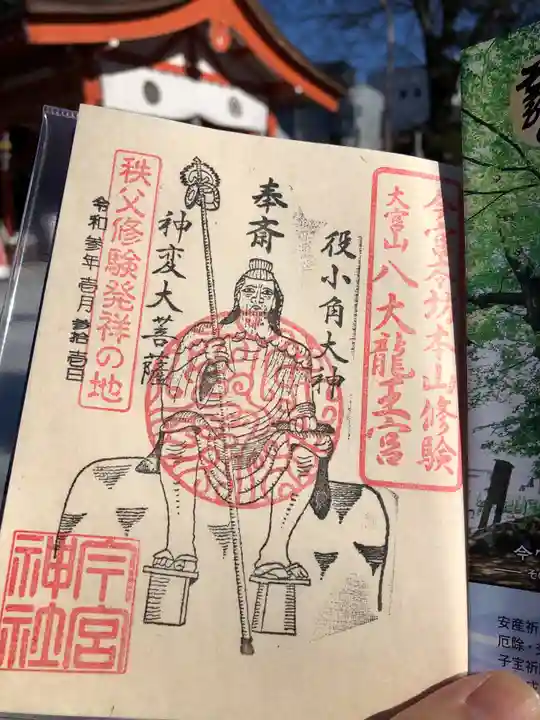 今宮寺坊本山修験
大宮山 八大龍王宮
役小角大神
奉斎
神変大菩薩
秩父修験発祥の地
令和参年壱月参拾壱日
今宮
神社
安産祈
厄除・
子宝祈